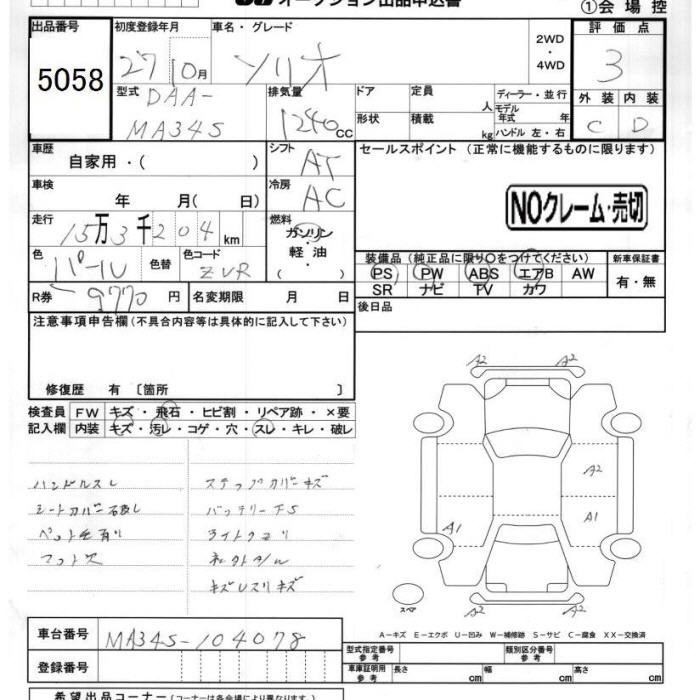 オークション出品申込書
①会場控
出品番号
5058
初度登録年月
27 10月
車名・グレード
ソリオ
2WD
・
4WD
評価点
3
外装 内装
C D
型式
DAA-
MA34S
排気量
1240cc
ドア
定員
人
形状
積載
kg
ディーラー・並行
モデル
年式 年
ハンドル 左・右
車歴
自家用・( )
シフト
AT
セールスポイント (正常に機能するものに限ります)
車検
年 月( 日)
冷房
AC
NOクレーム・売切
走行
15万3千204km
燃料
ガソリン
・
軽油
( )
色
パール
色替
色コード
ZVR
装備品 (純正品に限り○をつけてください)
PS PW ABS エアB AW
SR ナビ TV カワ
新車保証書
有・無
R券
9770円
名変期限 月 日
後日品
注意事項申告欄(不具合内容等は具体的に記入して下さい)
修復歴 有〔箇所 〕
検査員
記入欄
FW キズ・飛石・ヒビ割・リペア跡・×要
内装 キズ・汚レ・コゲ・穴・スレ・キレ・破レ
ハンドルスレ
シートカバー破レ
ペット毛有り
フット欠
ステップカバーキズ
バッテリーF5
ライトクモリ
キズレスリキズ
A2 A2
A2
A1
A1
A2 A2
スペア
A-キズ E-エクボ U-凹み W-補修跡 S-サビ C-腐食 XX-交換済
車台番号
MA34S-104078
登録番号
型式指定番号
参考
類別区分番号
参考
車庫証明用
参考
長さ cm
幅 cm
高さ cm
希望出品コーナー(コーナーは各会場により